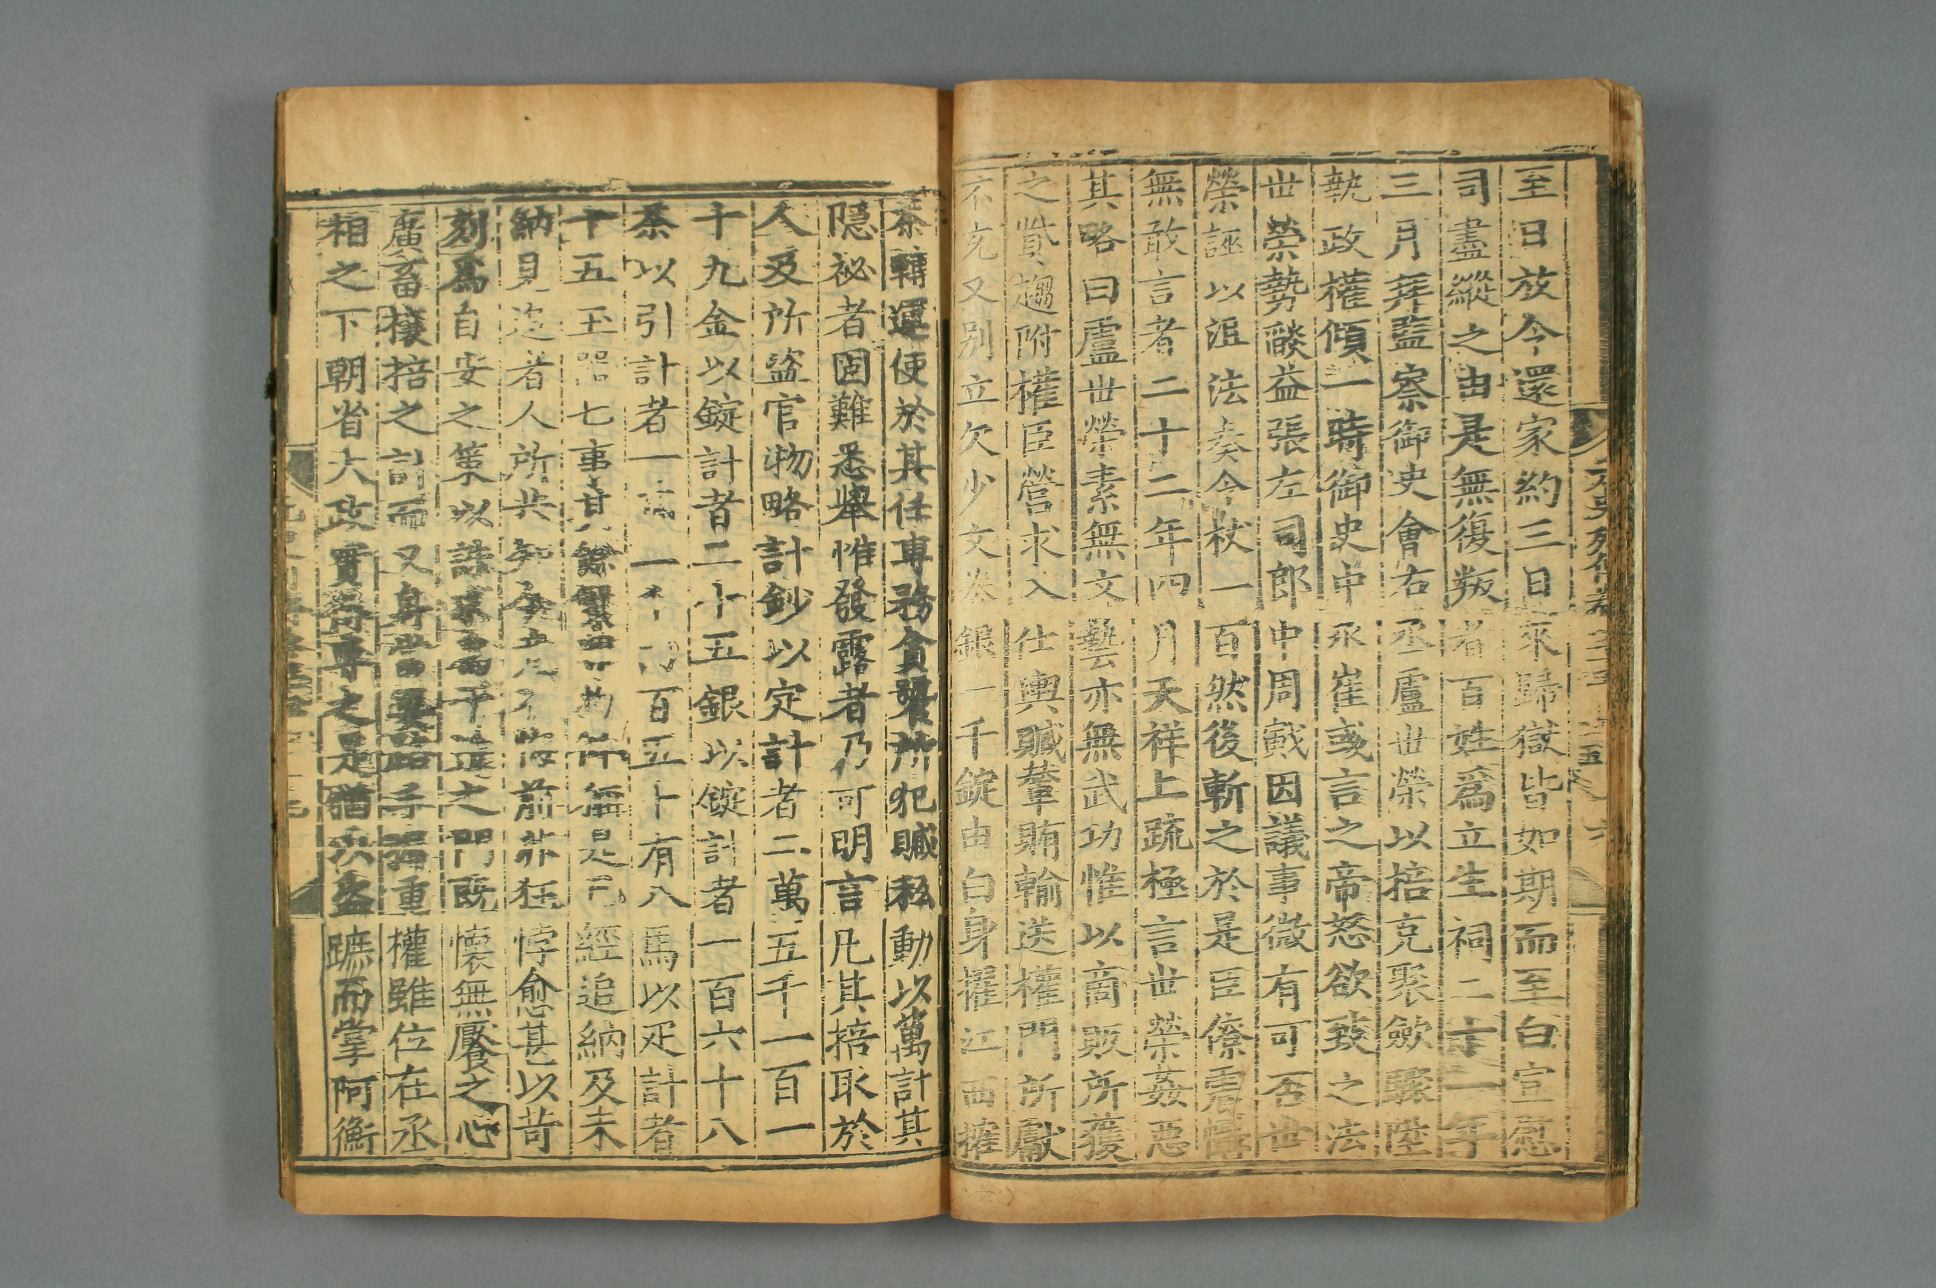 至日放令還家約三日來歸獄皆如期而至白宣慰
司盡縱之由是無復叛者百姓爲立生祠二十一年
三月拜監察御史會右丞盧世榮以掊克聚斂驟陞
執政權傾一時御史中丞崔彧言之帝怒欲致之法
世榮勢燄益張左司郎中周戭因議事微有可否世
榮誣以沮法奏令杖一百然後斬之於是臣僚震慴
無敢言者二十二年四月天祥上疏極言世榮姦惡
其略曰盧世榮素無文藝亦無武功惟以商販所獲
之貲趨附權臣營求入仕輿贓輦賄輸送權門所獻
不充又別立欠少文券銀一千錠由白身擢江西榷
茶轉運使於其任專務貪饕所犯贓私動以萬計其
隱祕者固難悉舉惟發露者乃可明言凡其掊取於
人及所盜官物略計鈔以定計者二萬五千一百一
十九金以錠計者二十五銀以錠計者一百六十八
茶以引計者一萬二千四百五十有八馬以疋計者
十五玉器七事其餘繁雜物件稱是已經追納及未
納見追者人所共知今竟不悔前非狂悖愈甚以苛
刻爲自安之策以誅求爲干進之門旣懷無饜之心
廣畜攘掊之計而又身當要路手握重權雖位在丞
相之下朝省大政實得專之是猶以盜蹠而掌阿衡
元史列傳卷五十五